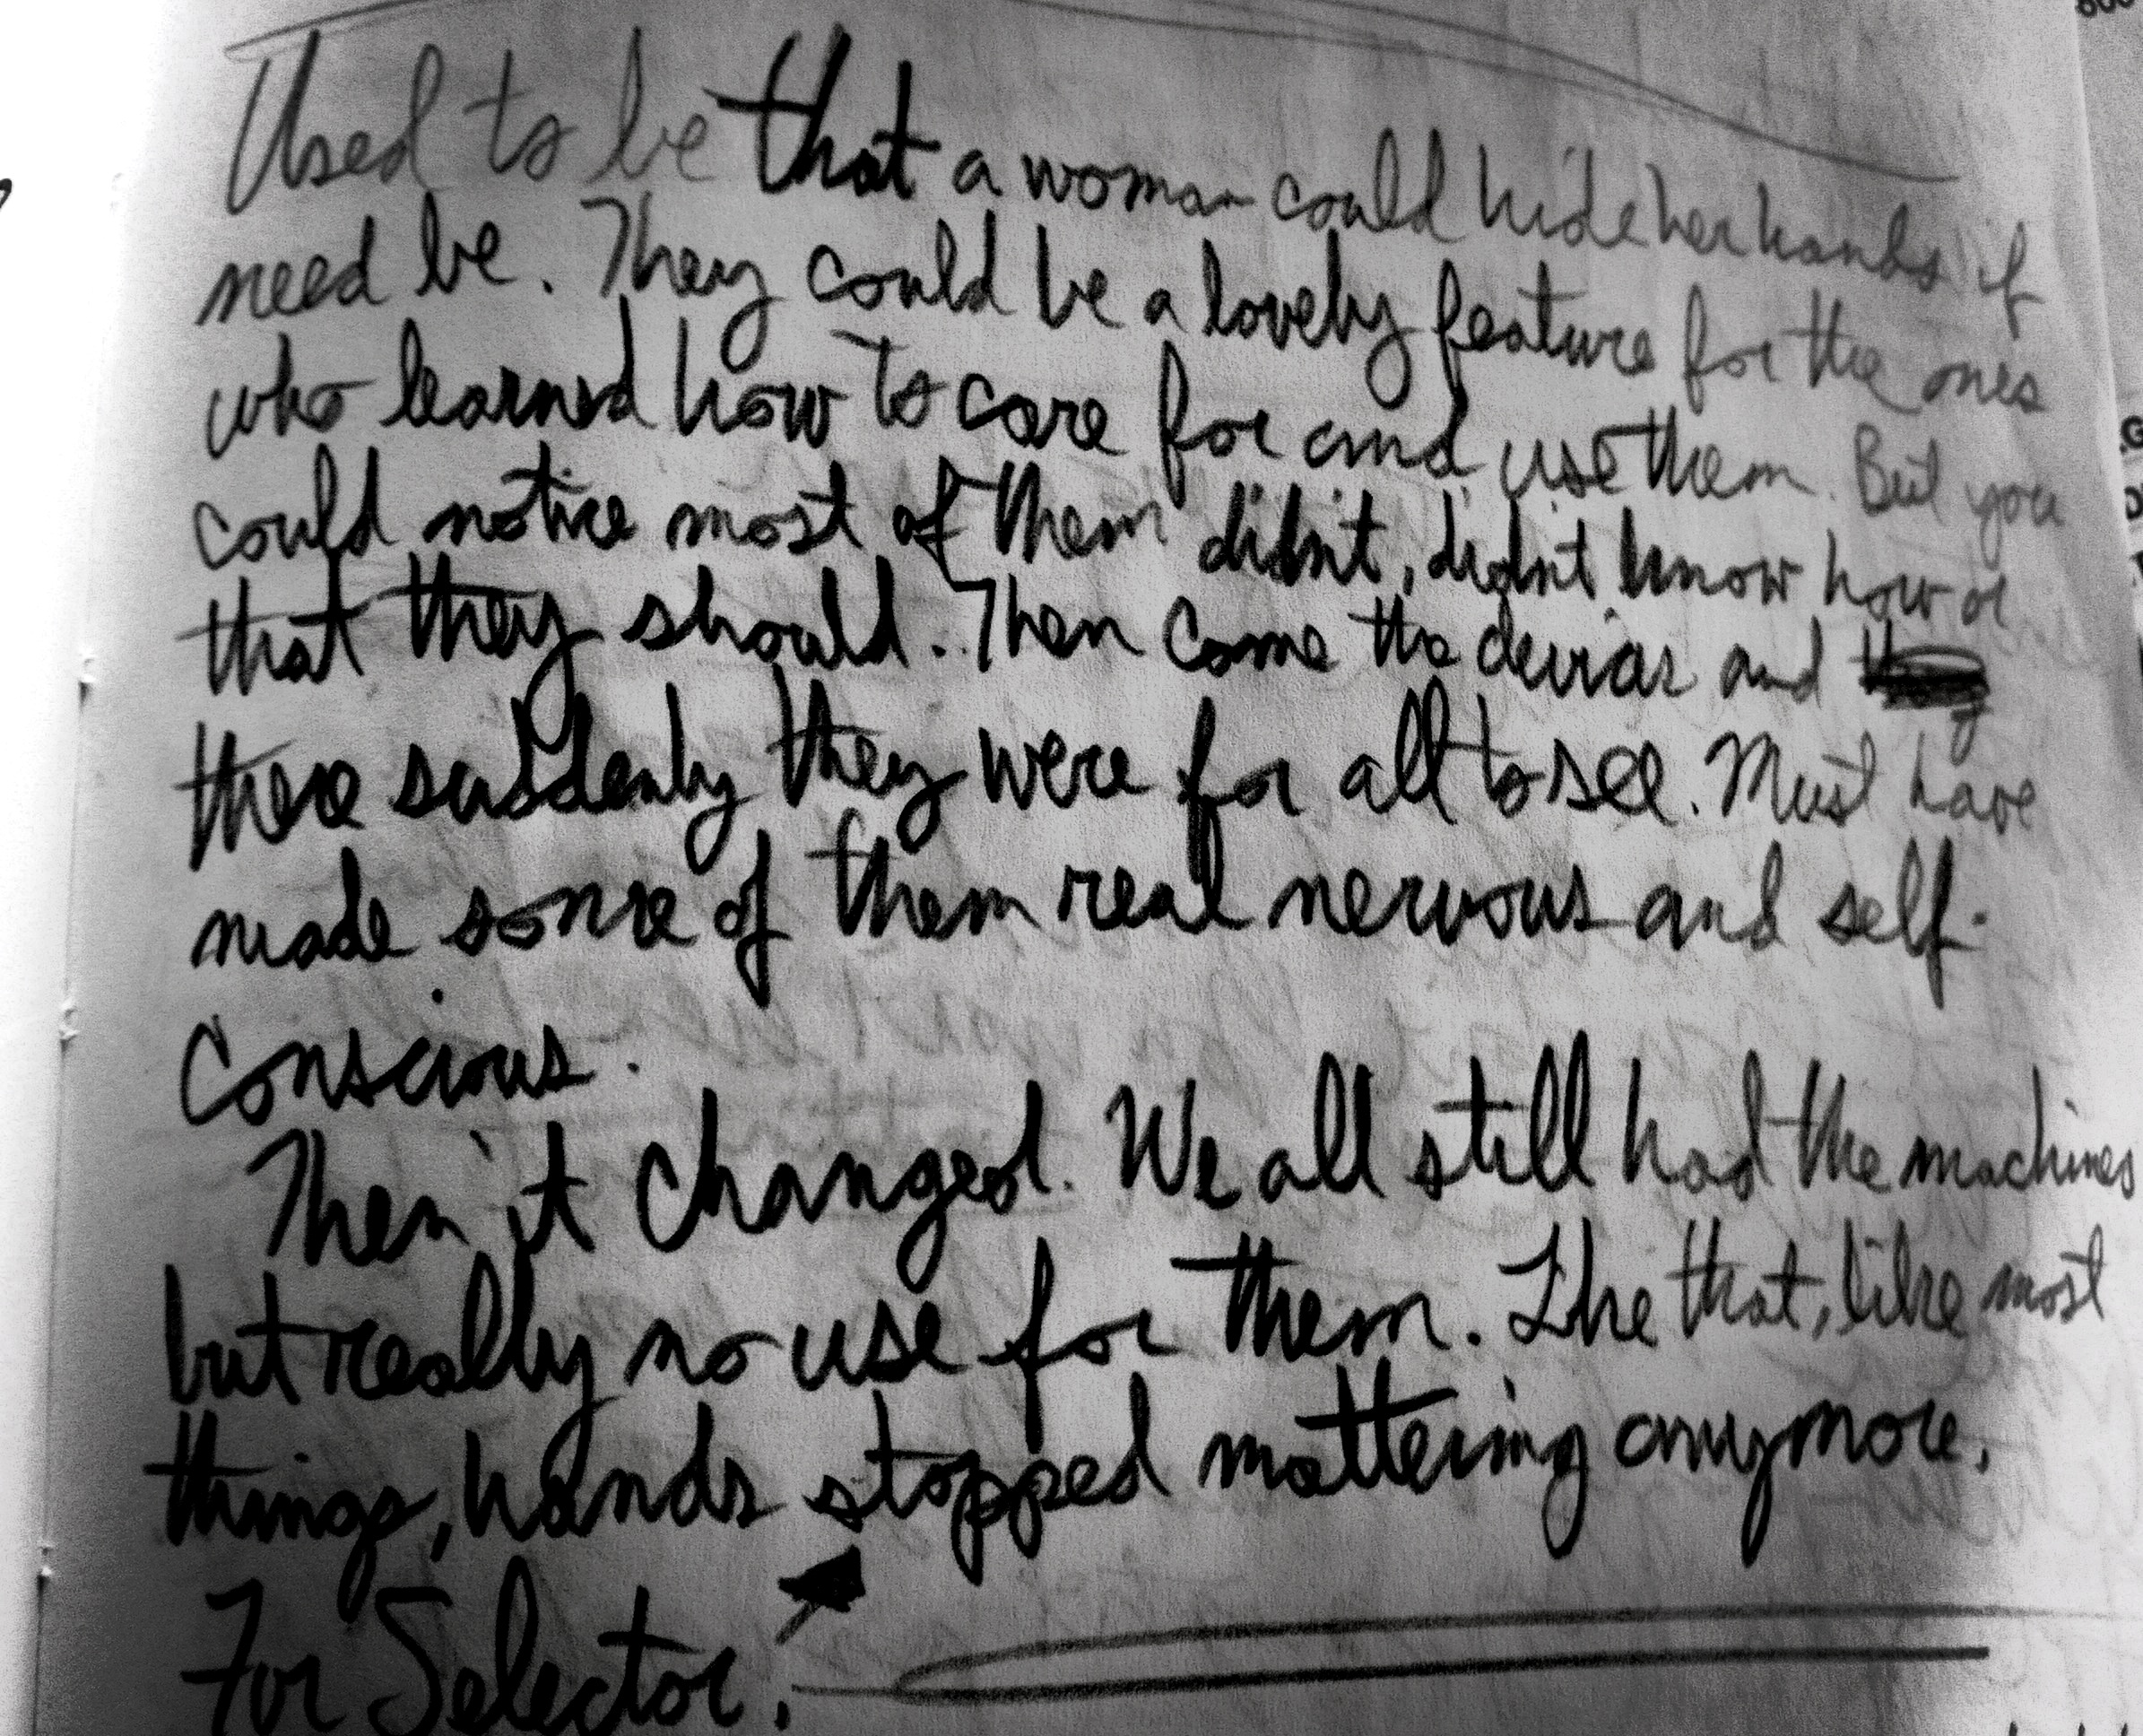 Used to be that a woman could hide her hands if
need be. They could be a lovely feature for the ones
who learned how to care for and use them. But you
could notice most of them didn't, didn't know how or
that they should. Then came the devices and
there suddenly they were for all to see. Must have
made some of them real nervous and self-
conscious.
Then it changed. We all still had the machines
but really no use for them. Like that, like most
things, hands stopped mattering anymore.
For Selector.